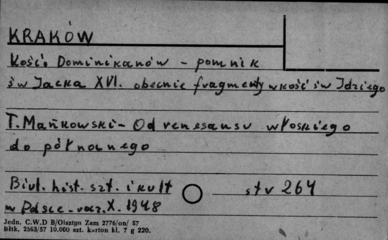 KRAKÓW
Kość. Dominikanów - pomnik
św Jacka XVI. obecnie fragmenty w kość św Idziego
T. Mańkowski - Od renesansu włoskiego
do północnego
Biul. hist. szt. i kult str 264
w Polsce - rocz. X. 1948
Jedn. C.W.D B/Olsztyn Zam 2776/on/ 57
Błtk. 2563/57 10.000 szt. karton kl. 7 g 220.